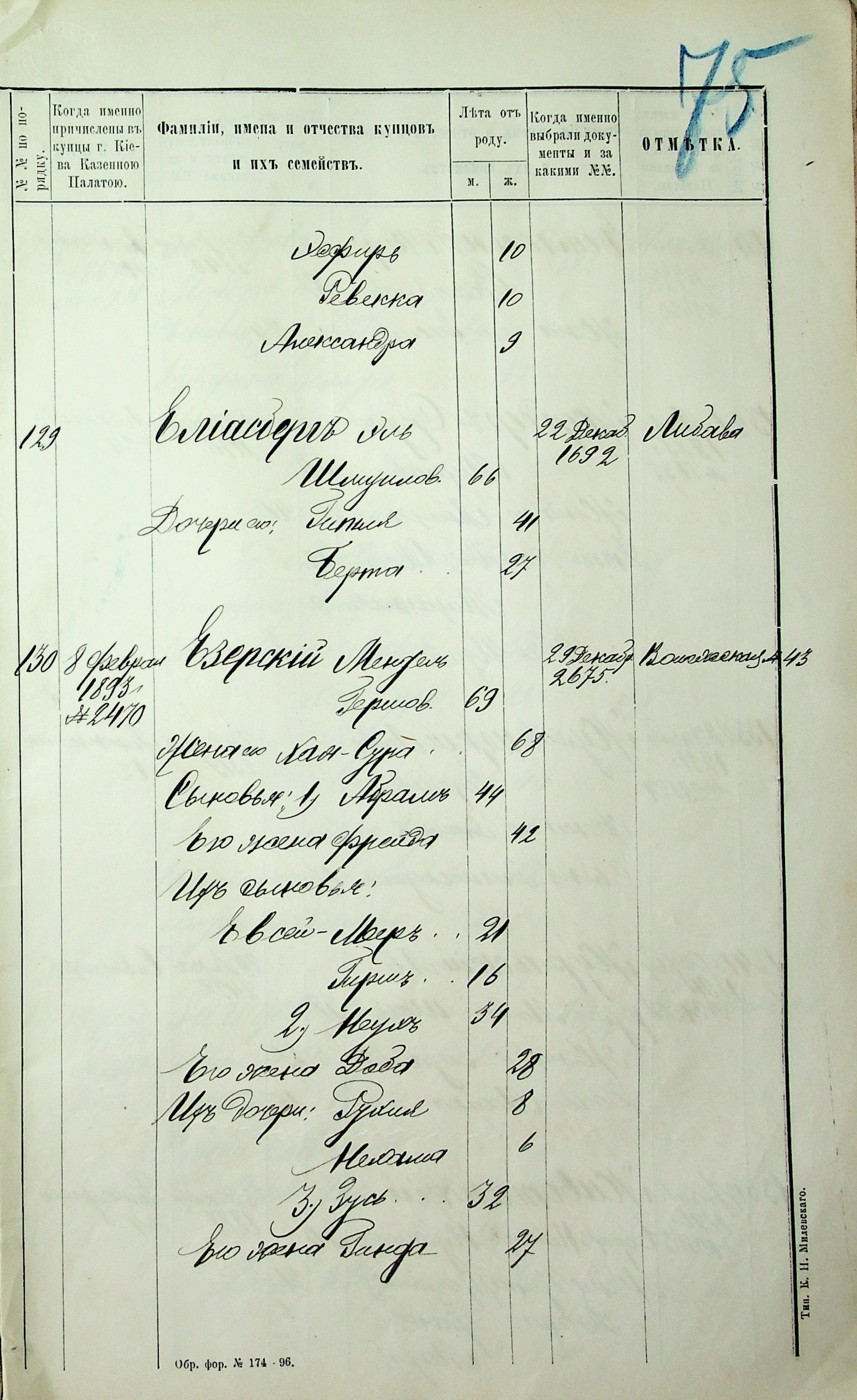 75
№№ по порядку.
Когда именно причислены въ купцы г. Кіева Казенною Палатою.
Фамиліи, имена и отчества купцовъ и ихъ семействъ.
Лѣта отъ роду.
м. ж.
Когда именно выбрали документы и за какими №№.
ОТМѢТКА.
Эсфирь 10
Ревекка 10
Александра 9
129 Еліасбергъ Эль 22 Декаб. Либава
Шмуилов. 66 1692
Дочери его: 41
Берта 27
130 8 Феврал Езерскій Мендель 29 Декабр 43
1893 2675.
№ 2470 Гершов. 69
Жена его Хая-Сура 68
Сыновья: 1) Абрамъ 44
Его жена Фрейда 42
Ихъ сыновья:
Евсей-Мееръ 21
Гиршъ 16
2) 34
Его жена Доба 28
Ихъ дочери: 8
Нехама 6
3) Зусь 32
Его жена Гинда 27
Обр. фор. № 174 - 96.
Тип. К. Н. Милевскаго.